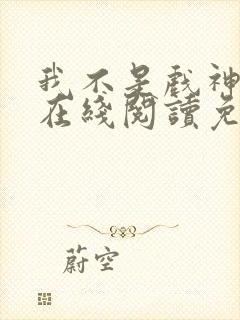 我不是戲神
在綫閱讀免
蔚空